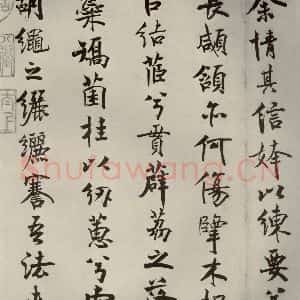 余情其信姱以練要兮
長顑頷亦何傷擥木根
以結茝兮貫薜荔之落
橤矯菌桂以紉蕙兮索
胡繩之纚纚謇吾法夫
shufawang.cn